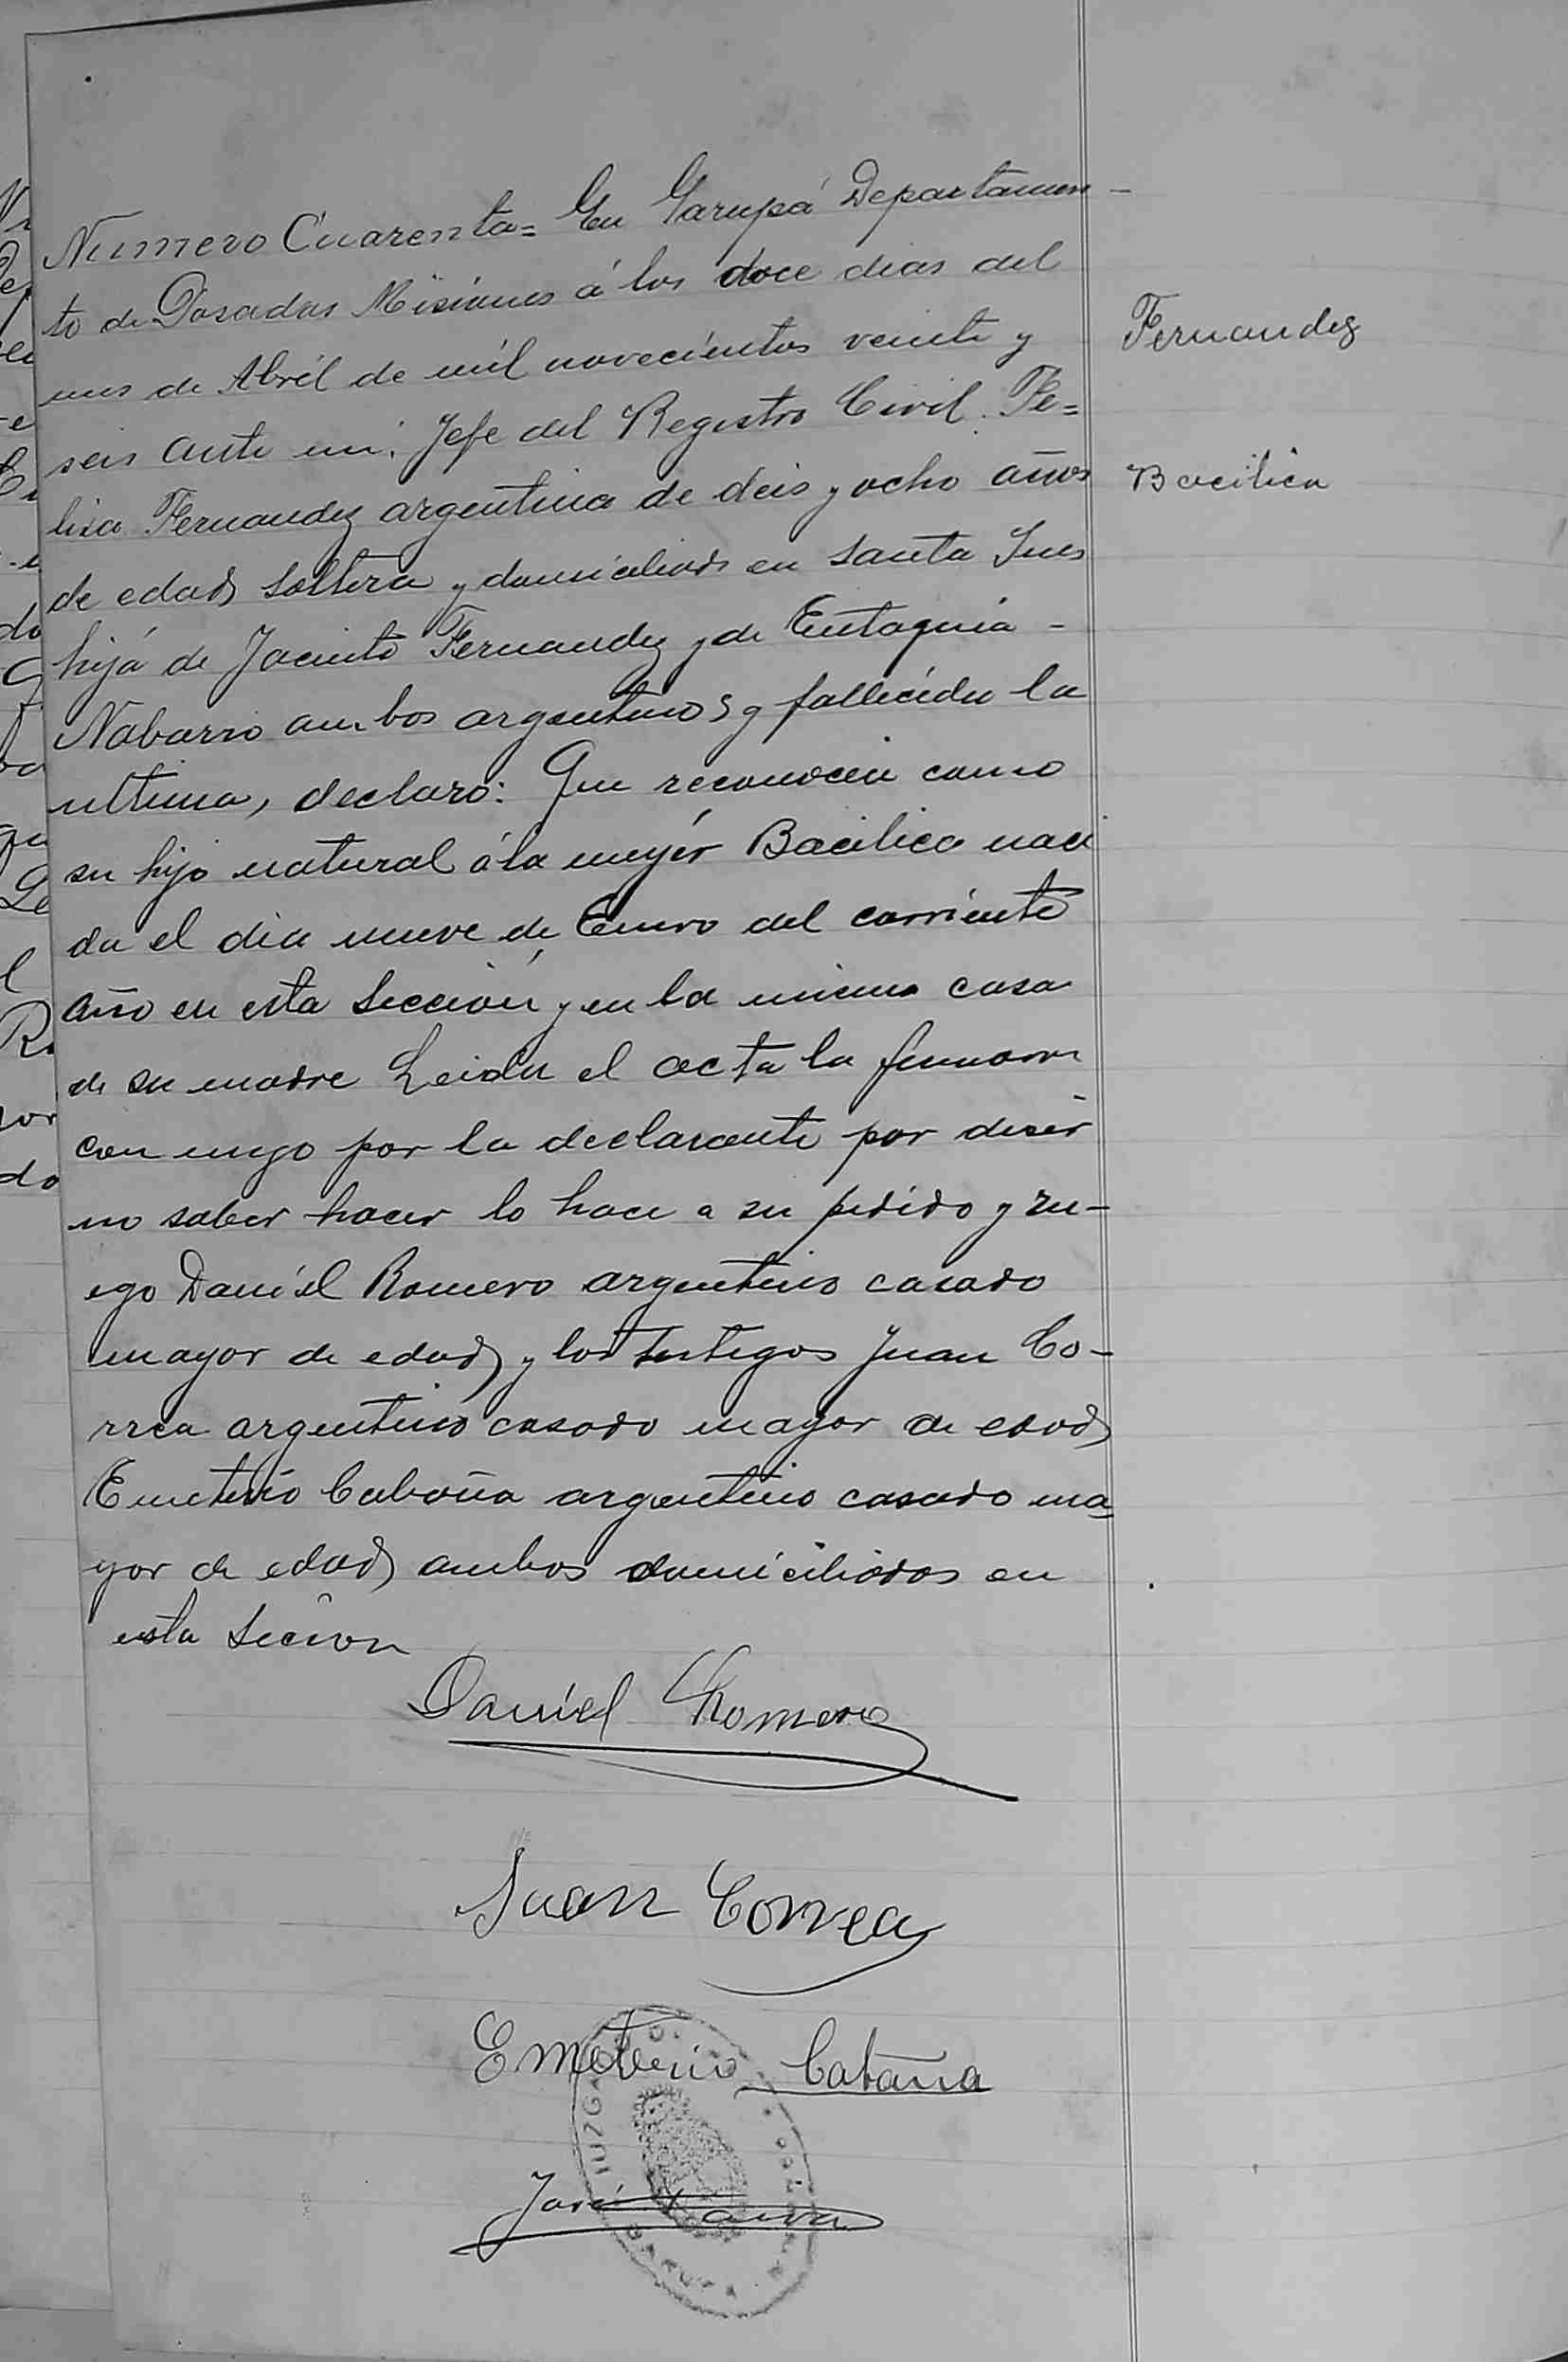 Numero Cuarenta= En Garupá Departamen-
to de Posadas Misiones á los doce dias del
mes de Abril de mil novecientos veinte y
seis ante mi: Jefe del Registro Civil. Fe=
lisa Fernandez argentina de deis y ocho años
de edad soltera y domiciliada en Santa Ines
hija de Jacinto Fernandez y de Eutaquia -
Nabarro ambos argentinos y fallecida la
ultima, declaro: Que reconocia como
su hijo natural á la mujér Bacilica naci
da el dia nueve de Enero del corriente
año en esta Sección y en la misma casa
de su madre Leida el acta la firmaron
con migo por la declarante por desir
no saber hacer lo hace a su pedido y ru-
ego Daniel Romero argentino casado
mayor de edad y los testigos Juan Co-
rrea argentino casado mayor de edad
Emeterio Cabaña argentino casado ma
yor de edad ambos domiciliados en
esta Secion
Fernandez
Bacilica
Daniel Romero
Juan Correa
Emeterio Cabaña
José
JUZGA
GARUPA